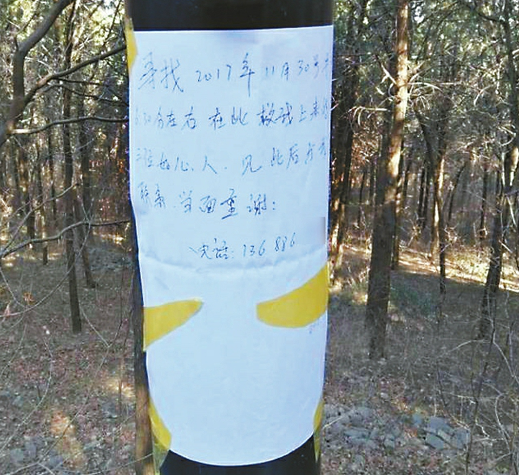 寻找2017年11月30号
分左右在此救我上来的
好心人、见此后与我
联系、当面重谢：
电话：136 886